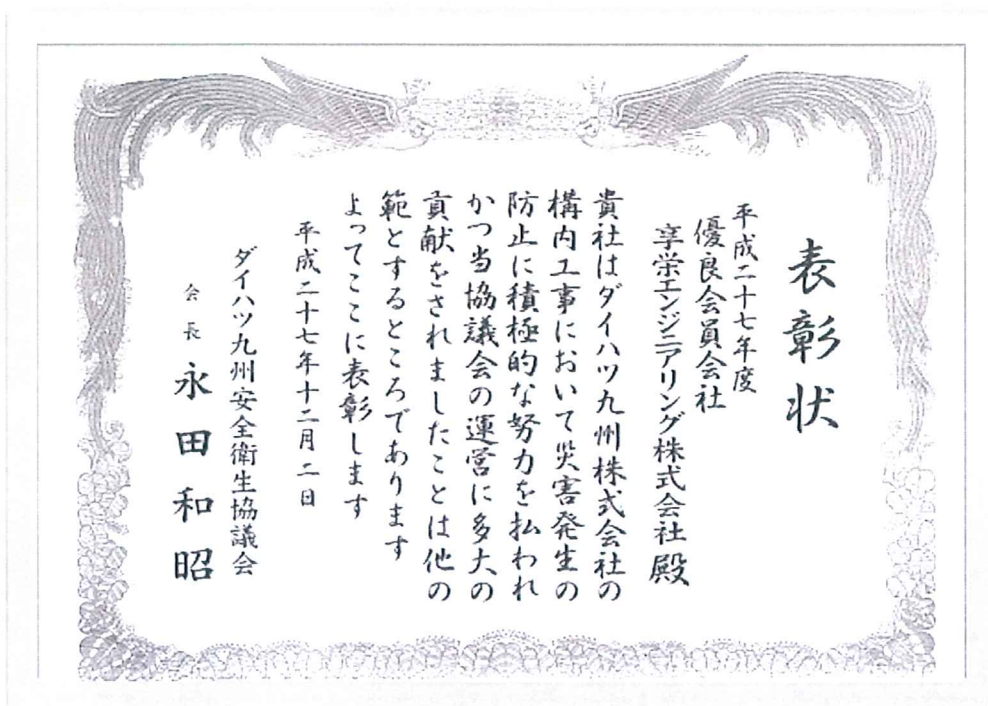 表彰状
平成二十七年度
優良会員会社
享栄エンジニアリング株式会社 殿
貴社はダイハツ九州株式会社の
構内工事において災害発生の
防止に積極的な努力を払われ
かつ当協議会の運営に多大の
貢献をされましたことは他の
範とするところであります
よってここに表彰します
平成二十七年十二月二日
ダイハツ九州安全衛生協議会
会長 永田和昭